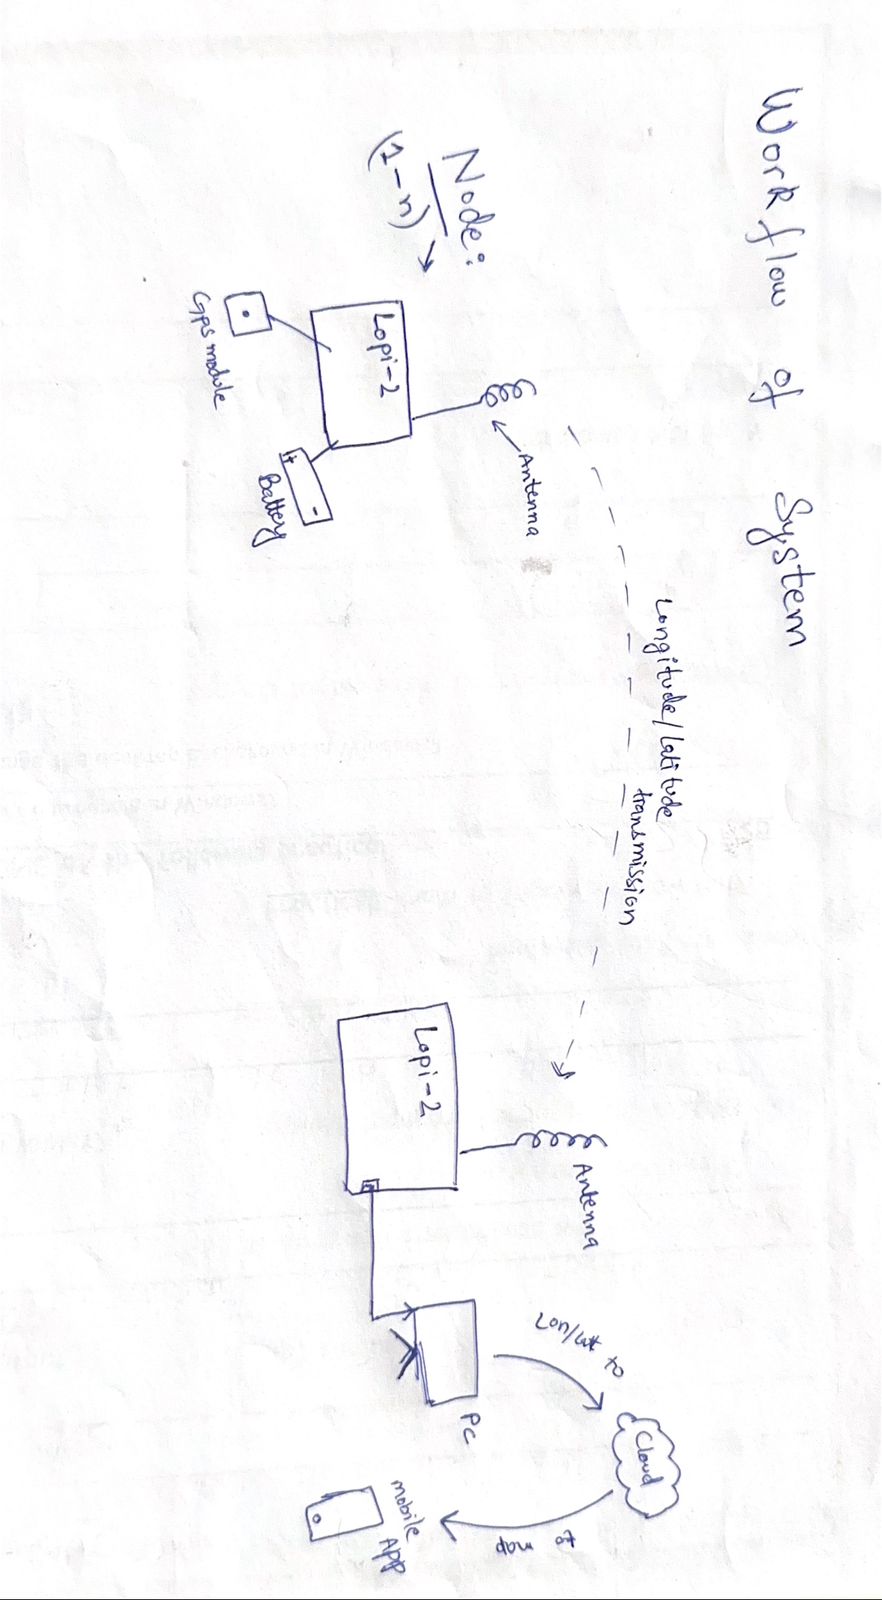 Work flow of System
Node:
(1-n)
Lopi-2
Antenna
GPS module
Battery
Longitude/Latitude
transmission
Lopi-2
Antenna
PC
Lon/Lat to
Cloud
to
mobile
App